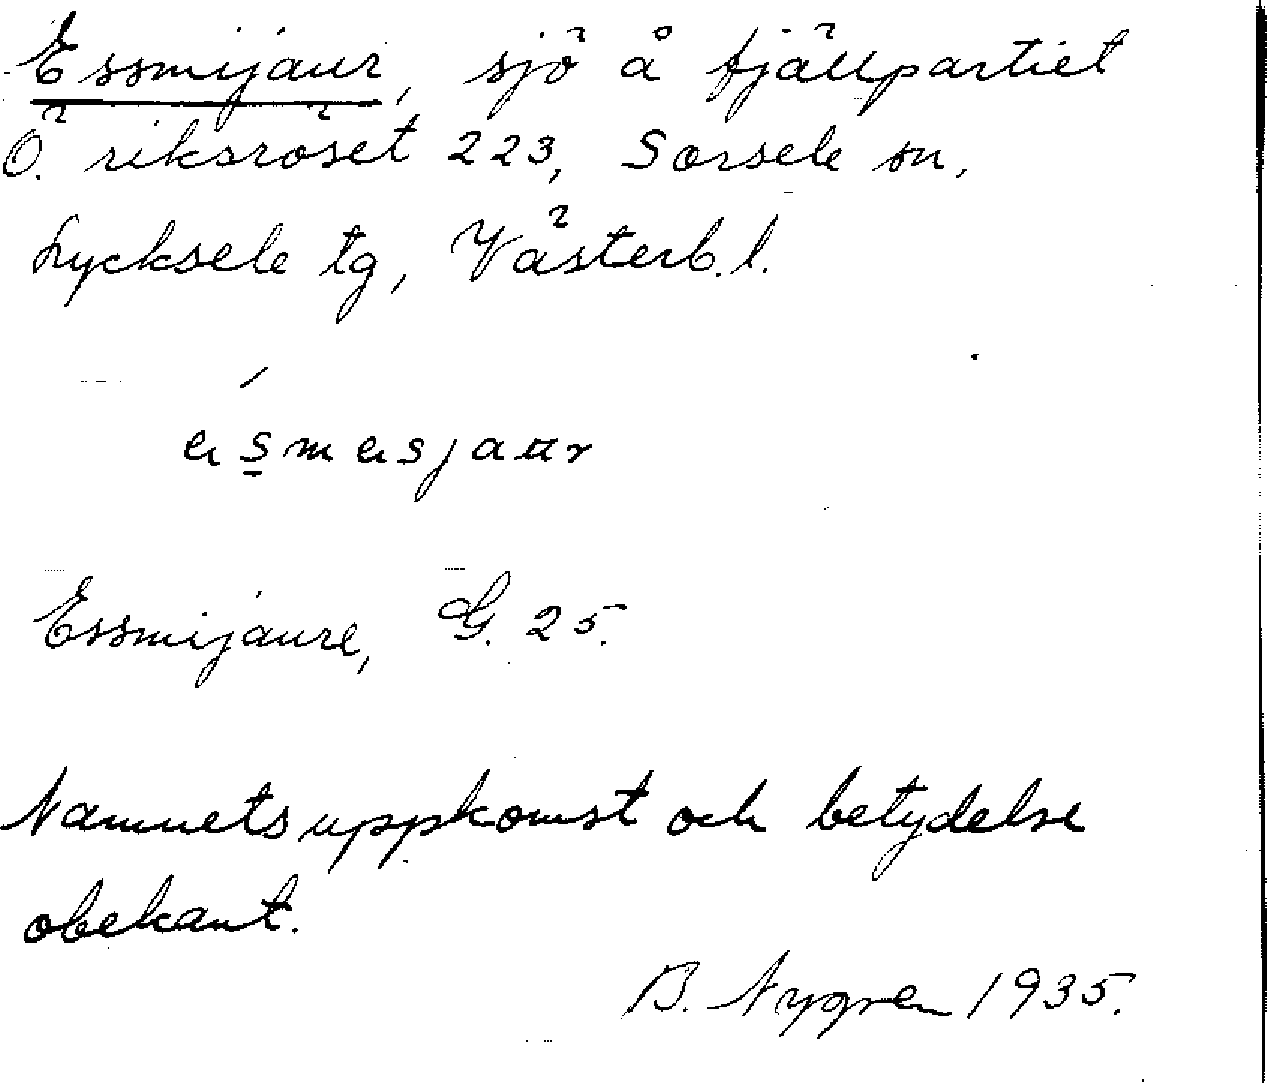 Essmijaur, sjö å fjällpartiet
Ö. riksröset 223, Sorsele sn,
Lycksele tg, Västerb. l.
Essmijaure, G. 25.
Namnets uppkomst och betydelse
obekant.
B. Nygren 1935.